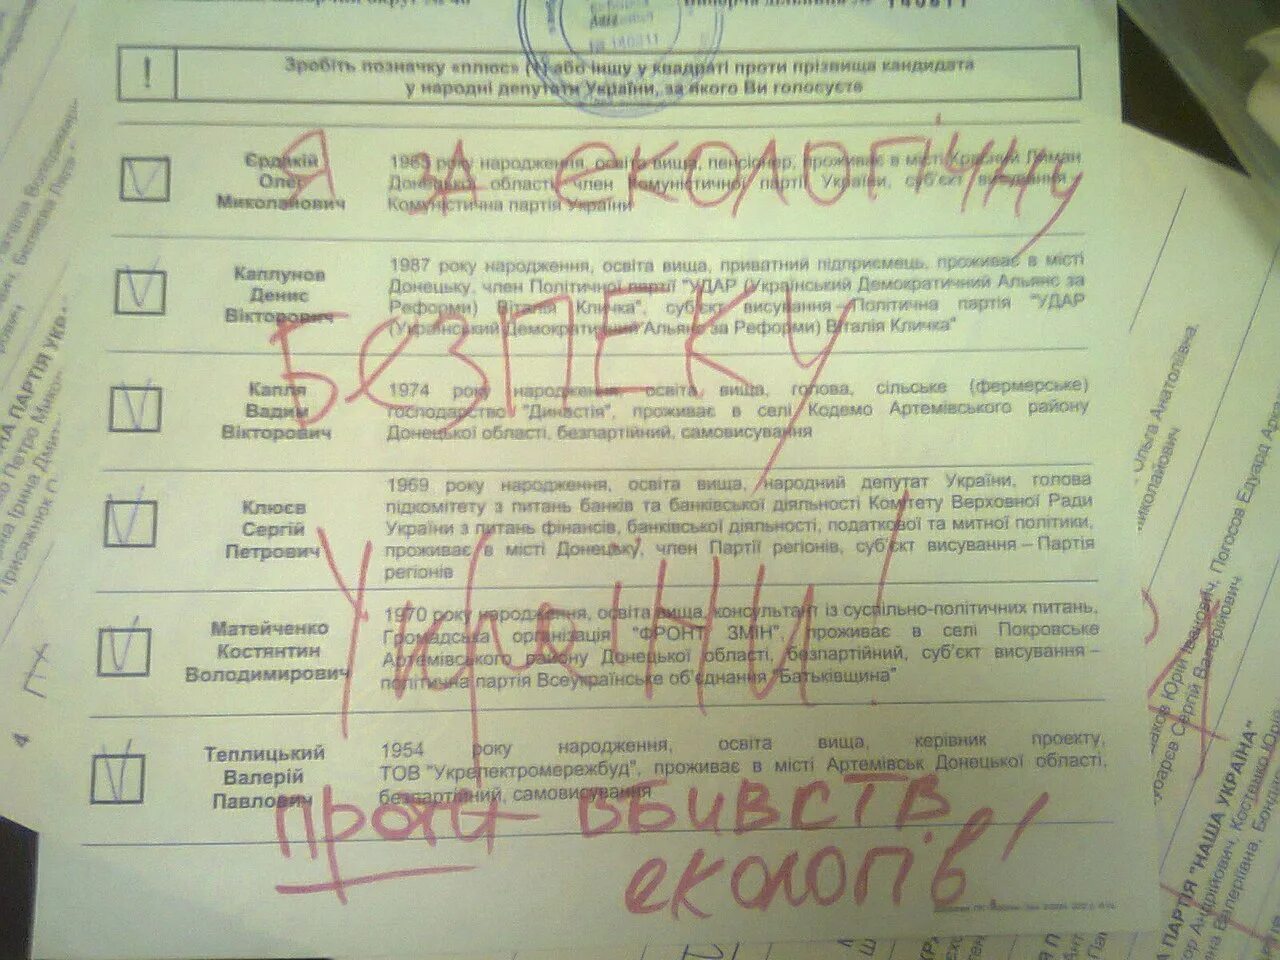 № 140811
!
Зробіть позначку «плюс» (+) або іншу у квадраті проти прізвища кандидата
у народні депутати України, за якого Ви голосуєте
Олег
Миколайович
1965 року народження, освіта вища, пенсіонер, проживає в місті Красний Лиман
Донецької області, член Комуністичної партії України, суб'єкт висування –
Комуністична партія України
Я ЗА ЕКОЛОГІЧНУ
Каплунов
Денис
Вікторович
1987 року народження, освіта вища, приватний підприємець, проживає в місті
Донецьку, член Політичної партії "УДАР (Український Демократичний Альянс за
Реформи) Віталія Кличка", суб'єкт висування – Політична партія "УДАР
(Український Демократичний Альянс за Реформи) Віталія Кличка"
БЕЗПЕКУ
Капля
Вадим
Вікторович
1974 року народження, освіта вища, голова, сільське (фермерське)
господарство "Династія", проживає в селі Кодемо Артемівського району
Донецької області, безпартійний, самовисування
Клюєв
Сергій
Петрович
1969 року народження, освіта вища, народний депутат України, голова
підкомітету з питань банків та банківської діяльності Комітету Верховної Ради
України з питань фінансів, банківської діяльності, податкової та митної політики,
проживає в місті Донецьку, член Партії регіонів, суб'єкт висування – Партія
регіонів
України!
Матейченко
Костянтин
Володимирович
1970 року народження, освіта вища, консультант із суспільно-політичних питань,
Громадська організація "ФРОНТ ЗМІН", проживає в селі Покровське
Артемівського району Донецької області, безпартійний, суб'єкт висування –
політична партія Всеукраїнське об'єднання "Батьківщина"
Теплицький
Валерій
Павлович
1954 року народження, освіта вища, керівник проекту,
ТОВ "Укрелектромережбуд", проживає в місті Артемівськ Донецької області,
безпартійний, самовисування
проти вбивств
екологів!
Ольга Анатоліївна,
Миколайович
Юрій Іванович, Погосов Едуард
Сергій Валерійович
ПАРТІЯ "НАША УКРАЇНА"
Андрійович, Костенко Юрій
Валеріївна
4